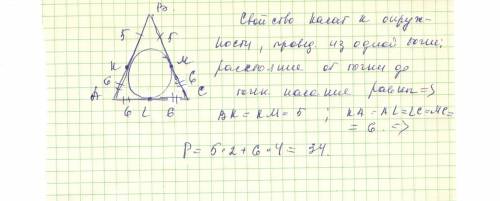 B
5 5
K M
6 6
A C
6 L 6
Свойство касат к окруж-
ности, провед из одной точки:
расстояние от точки до
точки касания равны =>
BK = KM = 5 ; KA = AL = LC = MC =
= 6 . =>
P = 5·2 + 6·4 = 34.